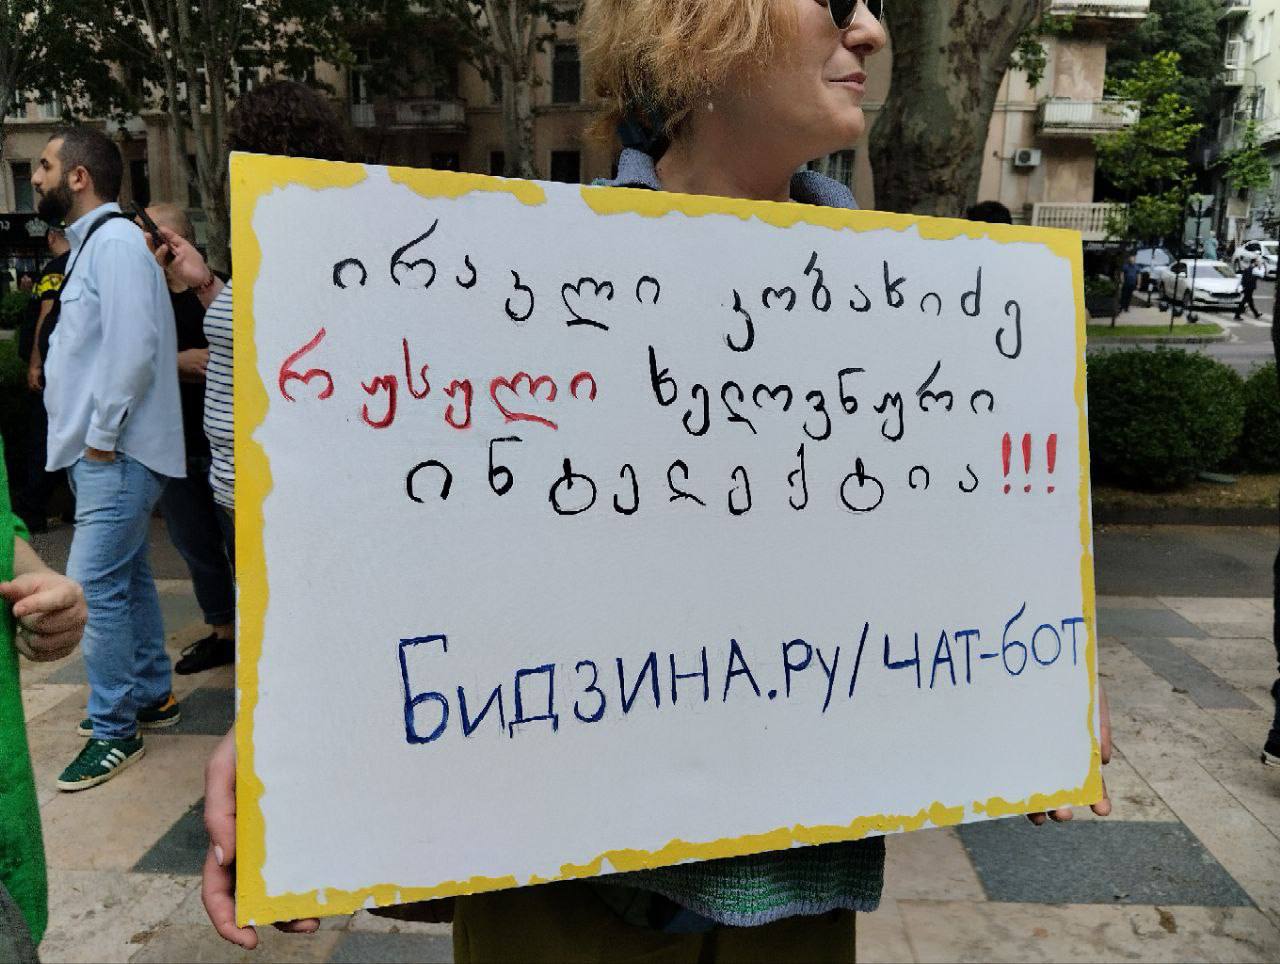 ირაკლი კობახიძე
რუსული ხელოვნური
ინტელექტია!!!
Бидзина.ру/чат-бот